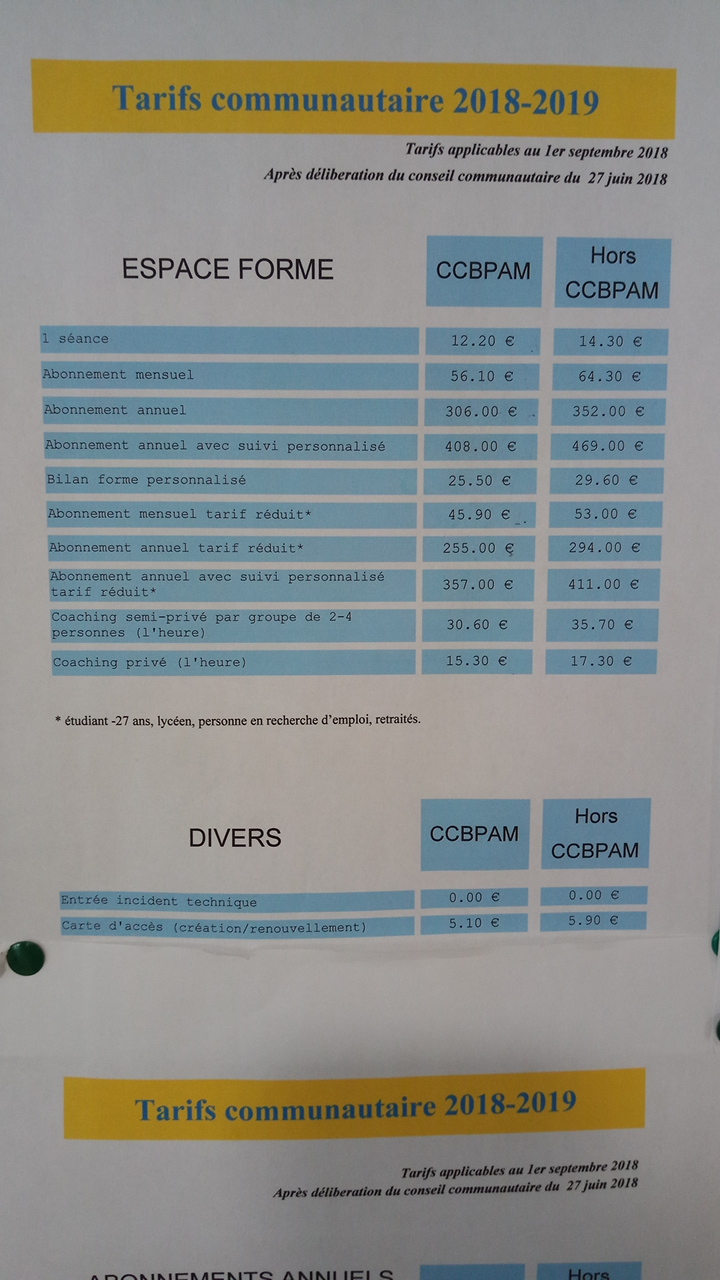 Tarifs communautaire 2018-2019
Tarifs applicables au 1er septembre 2018
Après déliberation du conseil communautaire du 27 juin 2018
ESPACE FORME CCBPAM Hors
CCBPAM
1 séance 12.20 € 14.30 €
Abonnement mensuel 56.10 € 64.30 €
Abonnement annuel 306.00 € 352.00 €
Abonnement annuel avec suivi personnalisé 408.00 € 469.00 €
Bilan forme personnalisé 25.50 € 29.60 €
Abonnement mensuel tarif réduit* 45.90 € 53.00 €
Abonnement annuel tarif réduit* 255.00 € 294.00 €
Abonnement annuel avec suivi personnalisé
tarif réduit* 357.00 € 411.00 €
Coaching semi-privé par groupe de 2-4
personnes (l'heure) 30.60 € 35.70 €
Coaching privé (l'heure) 15.30 € 17.30 €
* étudiant -27 ans, lycéen, personne en recherche d'emploi, retraités.
DIVERS CCBPAM Hors
CCBPAM
Entrée incident technique 0.00 € 0.00 €
Carte d'accès (création/renouvellement) 5.10 € 5.90 €
Tarifs communautaire 2018-2019
Tarifs applicables au 1er septembre 2018
Après déliberation du conseil communautaire du 27 juin 2018
ABONNEMENTS ANNUELS Hors